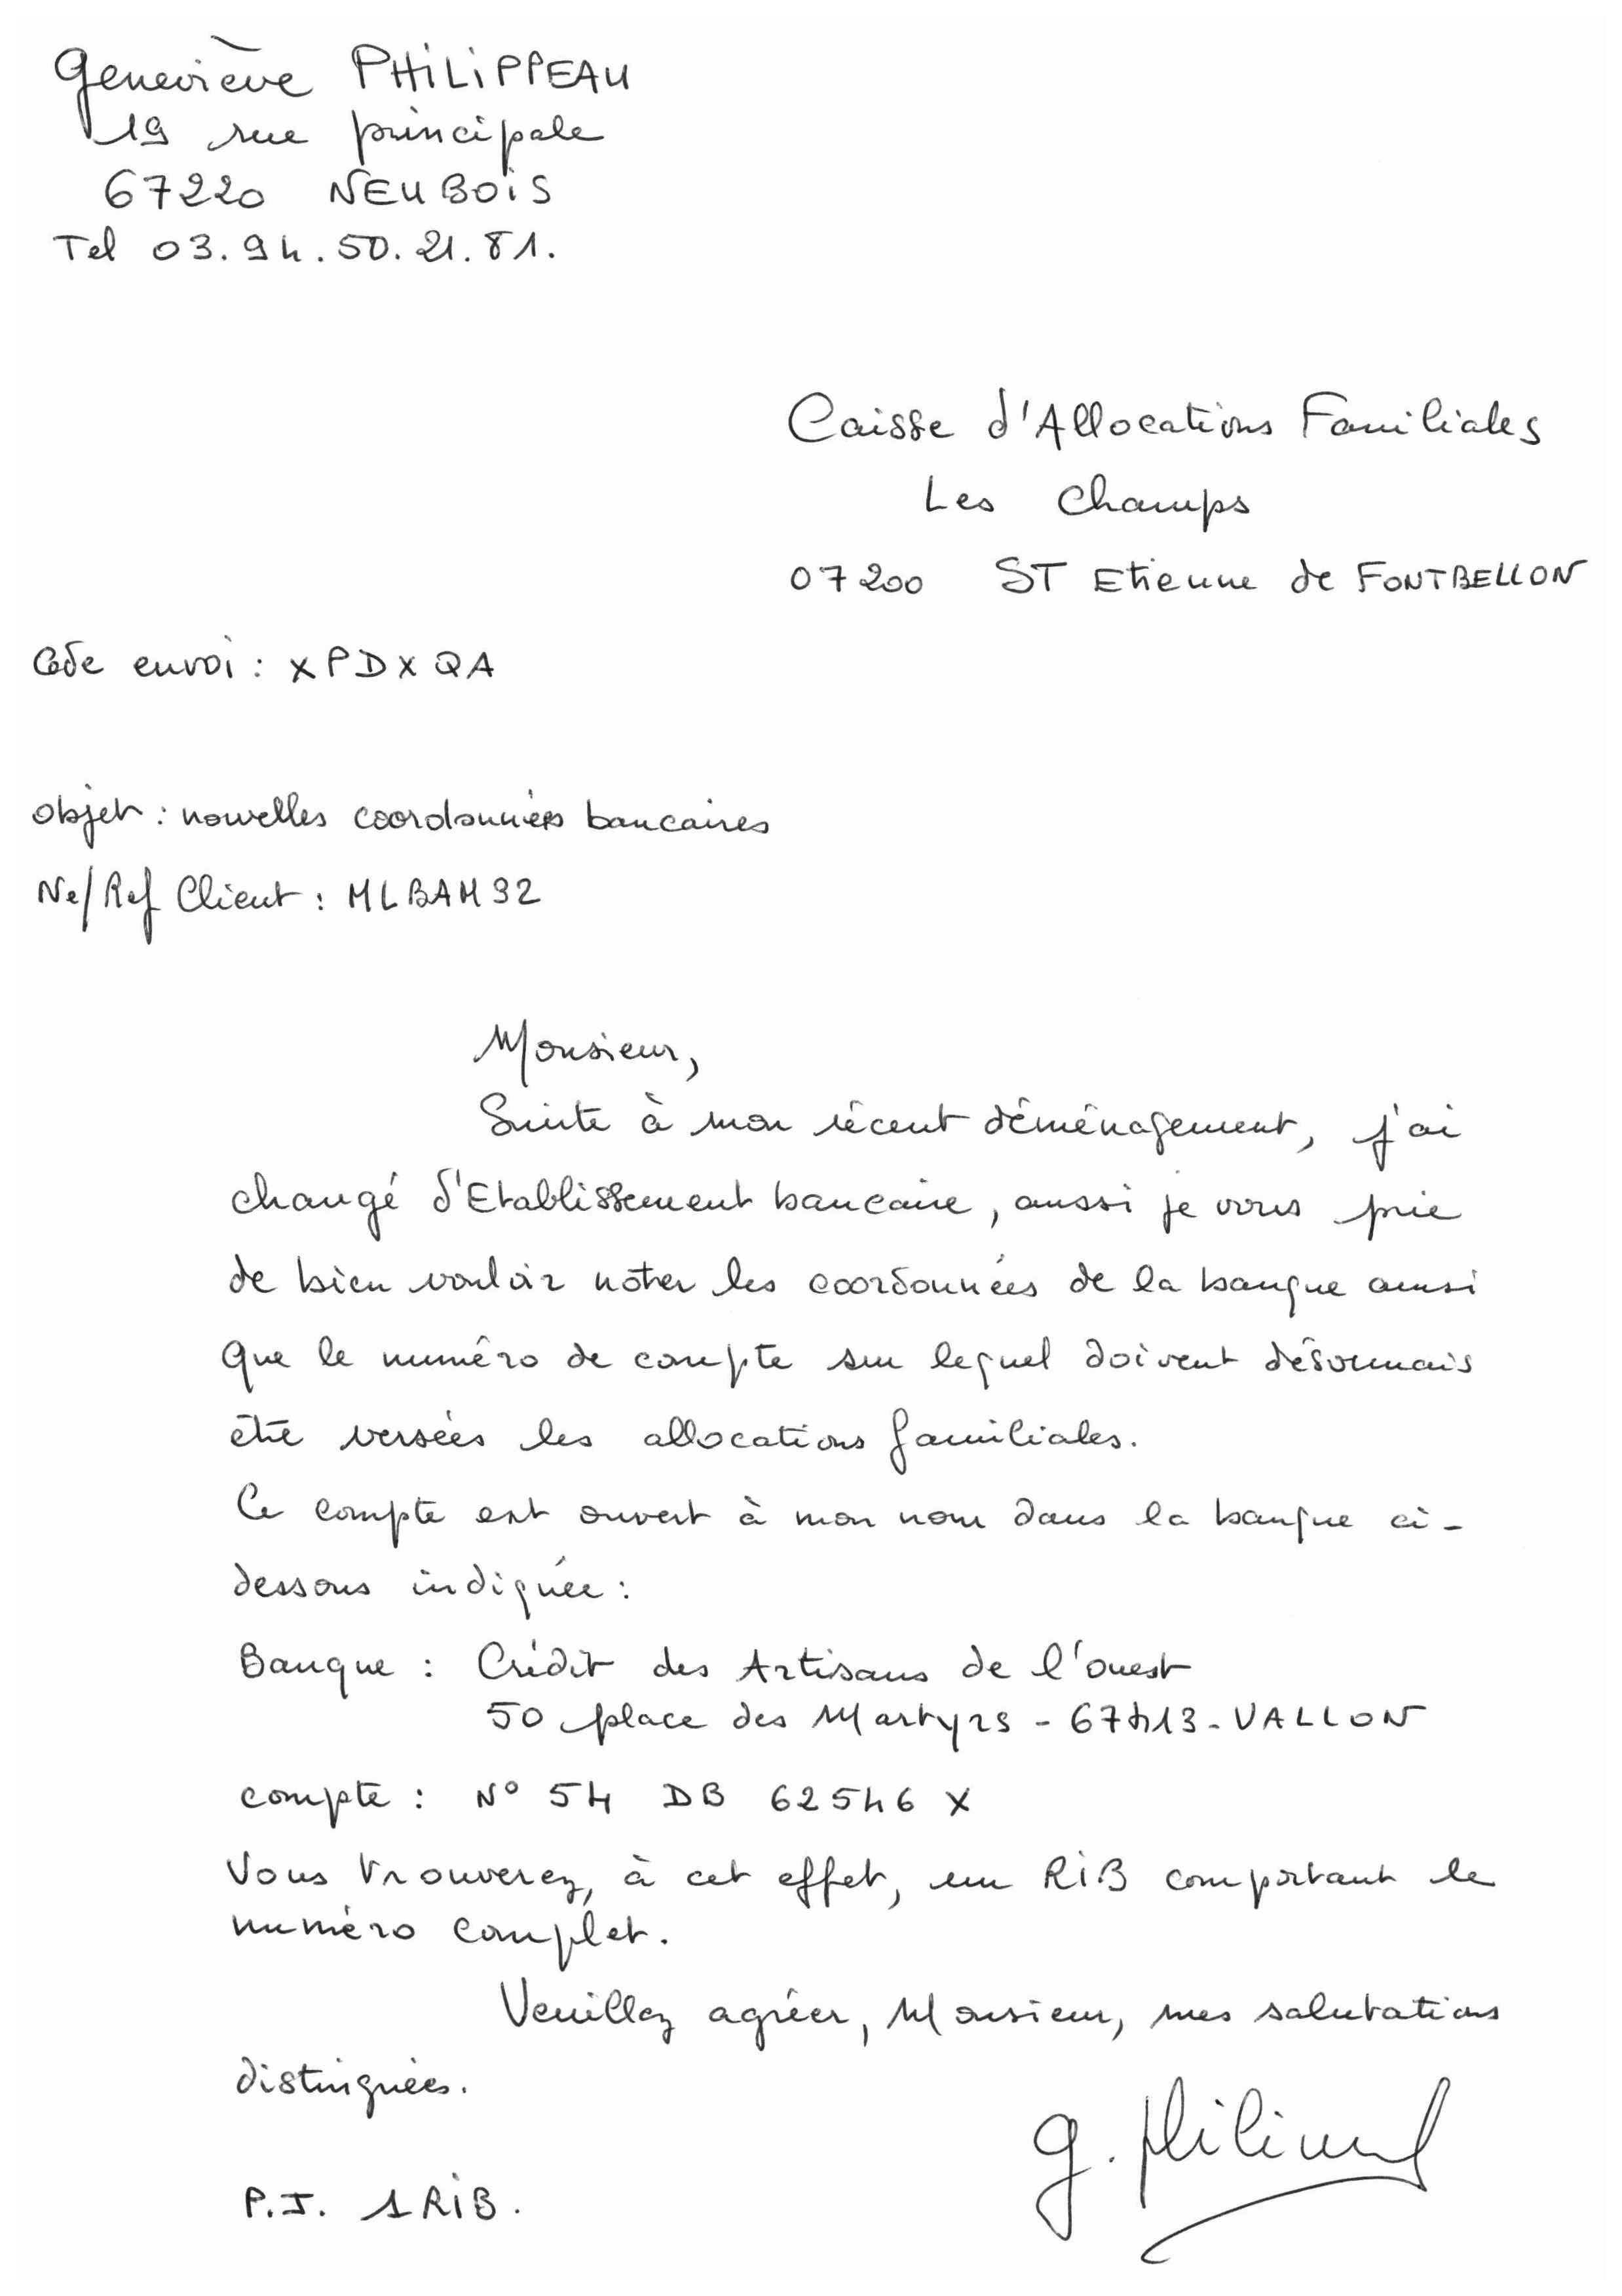 Geneviève PHILIPPEAU
19 rue principale
67220 NEUBOIS
Tel 03.94.50.21.81.
Caisse d'Allocations Familiales
Les Champs
07200 ST Etienne de FONTBELLON
Code envoi : XPDXQA
Objet : nouvelles coordonnées bancaires
Ne/Ref Client : MLBAM92
Monsieur,
Suite à mon récent déménagement, j'ai
changé d'Etablissement bancaire, aussi je vous prie
de bien vouloir noter les coordonnées de la banque ainsi
que le numéro de compte sur lequel doivent désormais
être versées les allocations familiales.
Ce compte est ouvert à mon nom dans la banque ci-
dessous indiquée :
Banque : Crédit des Artisans de l'ouest
50 place des Martyrs - 67413 - VALLON
compte : N° 54 DB 62546 X
Vous trouverez, à cet effet, un RIB comportant le
numéro complet.
Veuillez agréer, Monsieur, mes salutations
distinguées.
P.J. 1 RIB.